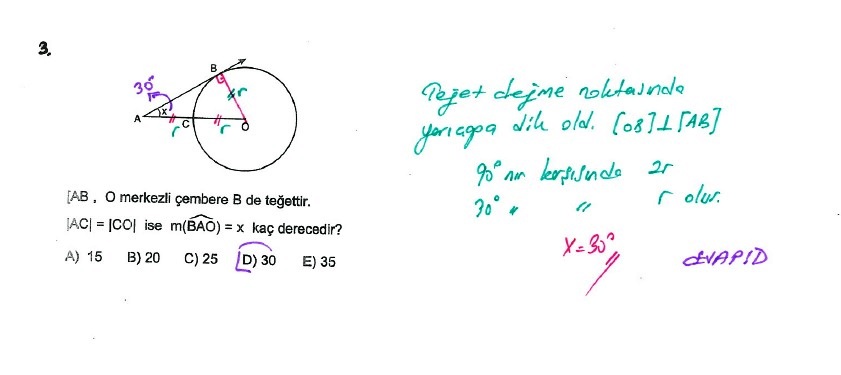 3.
30°
B
r
A
x
C
O
r
r
[AB , O merkezli çembere B de teğettir.
|AC| = |CO| ise m(BAO) = x kaç derecedir?
A) 15 B) 20 C) 25 D) 30 E) 35
Teğet değme noktasında
yarıçapa dik old. [OB]⊥[AB]
90° nın karşısında 2r
30° " " r olur.
x=30°
CEVAP D